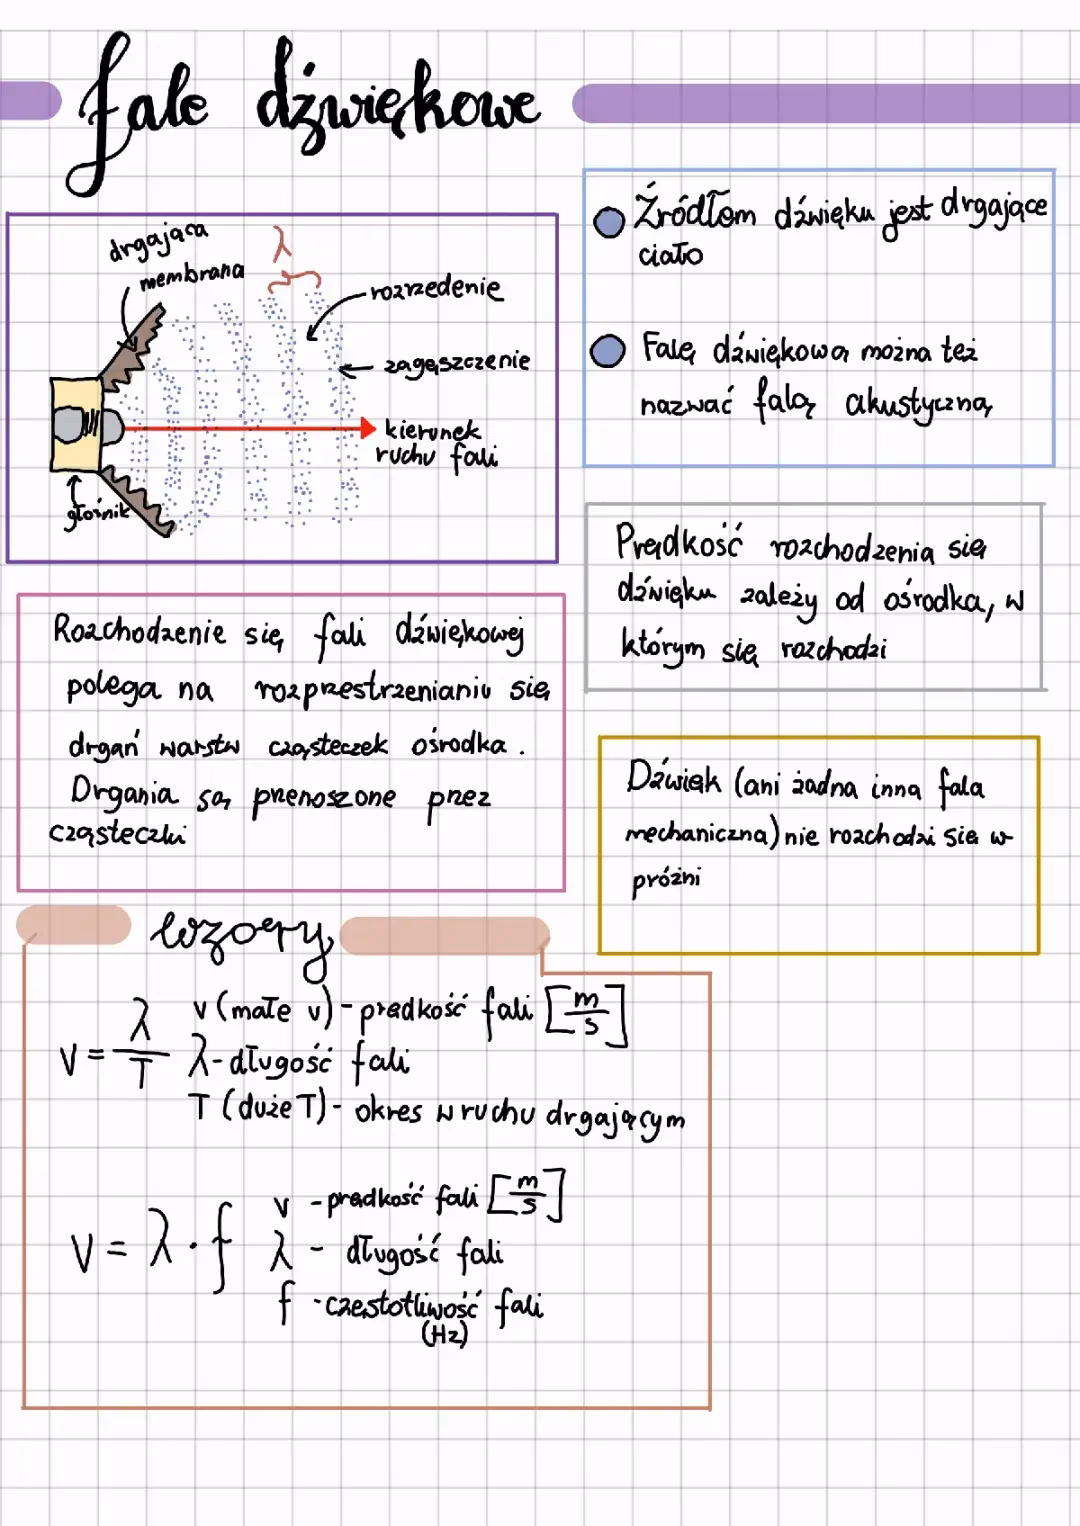 fale dźwiękowe
drgająca
membrana
λ
rozrzedenie
zagęszczenie
kierunek
ruchu fali
głośnik
Źródłem dźwięku jest drgające
ciało
Falę dźwiękową można też
nazwać falą akustyczną
Prędkość rozchodzenia się
dźwięku zależy od ośrodka, w
którym się rozchodzi
Rozchodzenie się fali dźwiękowej
polega na rozprzestrzenianiu się
drgań warstw cząsteczek ośrodka.
Drgania są przenoszone przez
cząsteczki
Dźwięk (ani żadna inna fala
mechaniczna) nie rozchodzi się w
próżni
wzory
V = λ/T
v (małe v) - prędkość fali [m/s]
λ - długość fali
T (duże T) - okres w ruchu drgającym
V = λ · f
v - prędkość fali [m/s]
λ - długość fali
f - częstotliwość fali
(Hz)